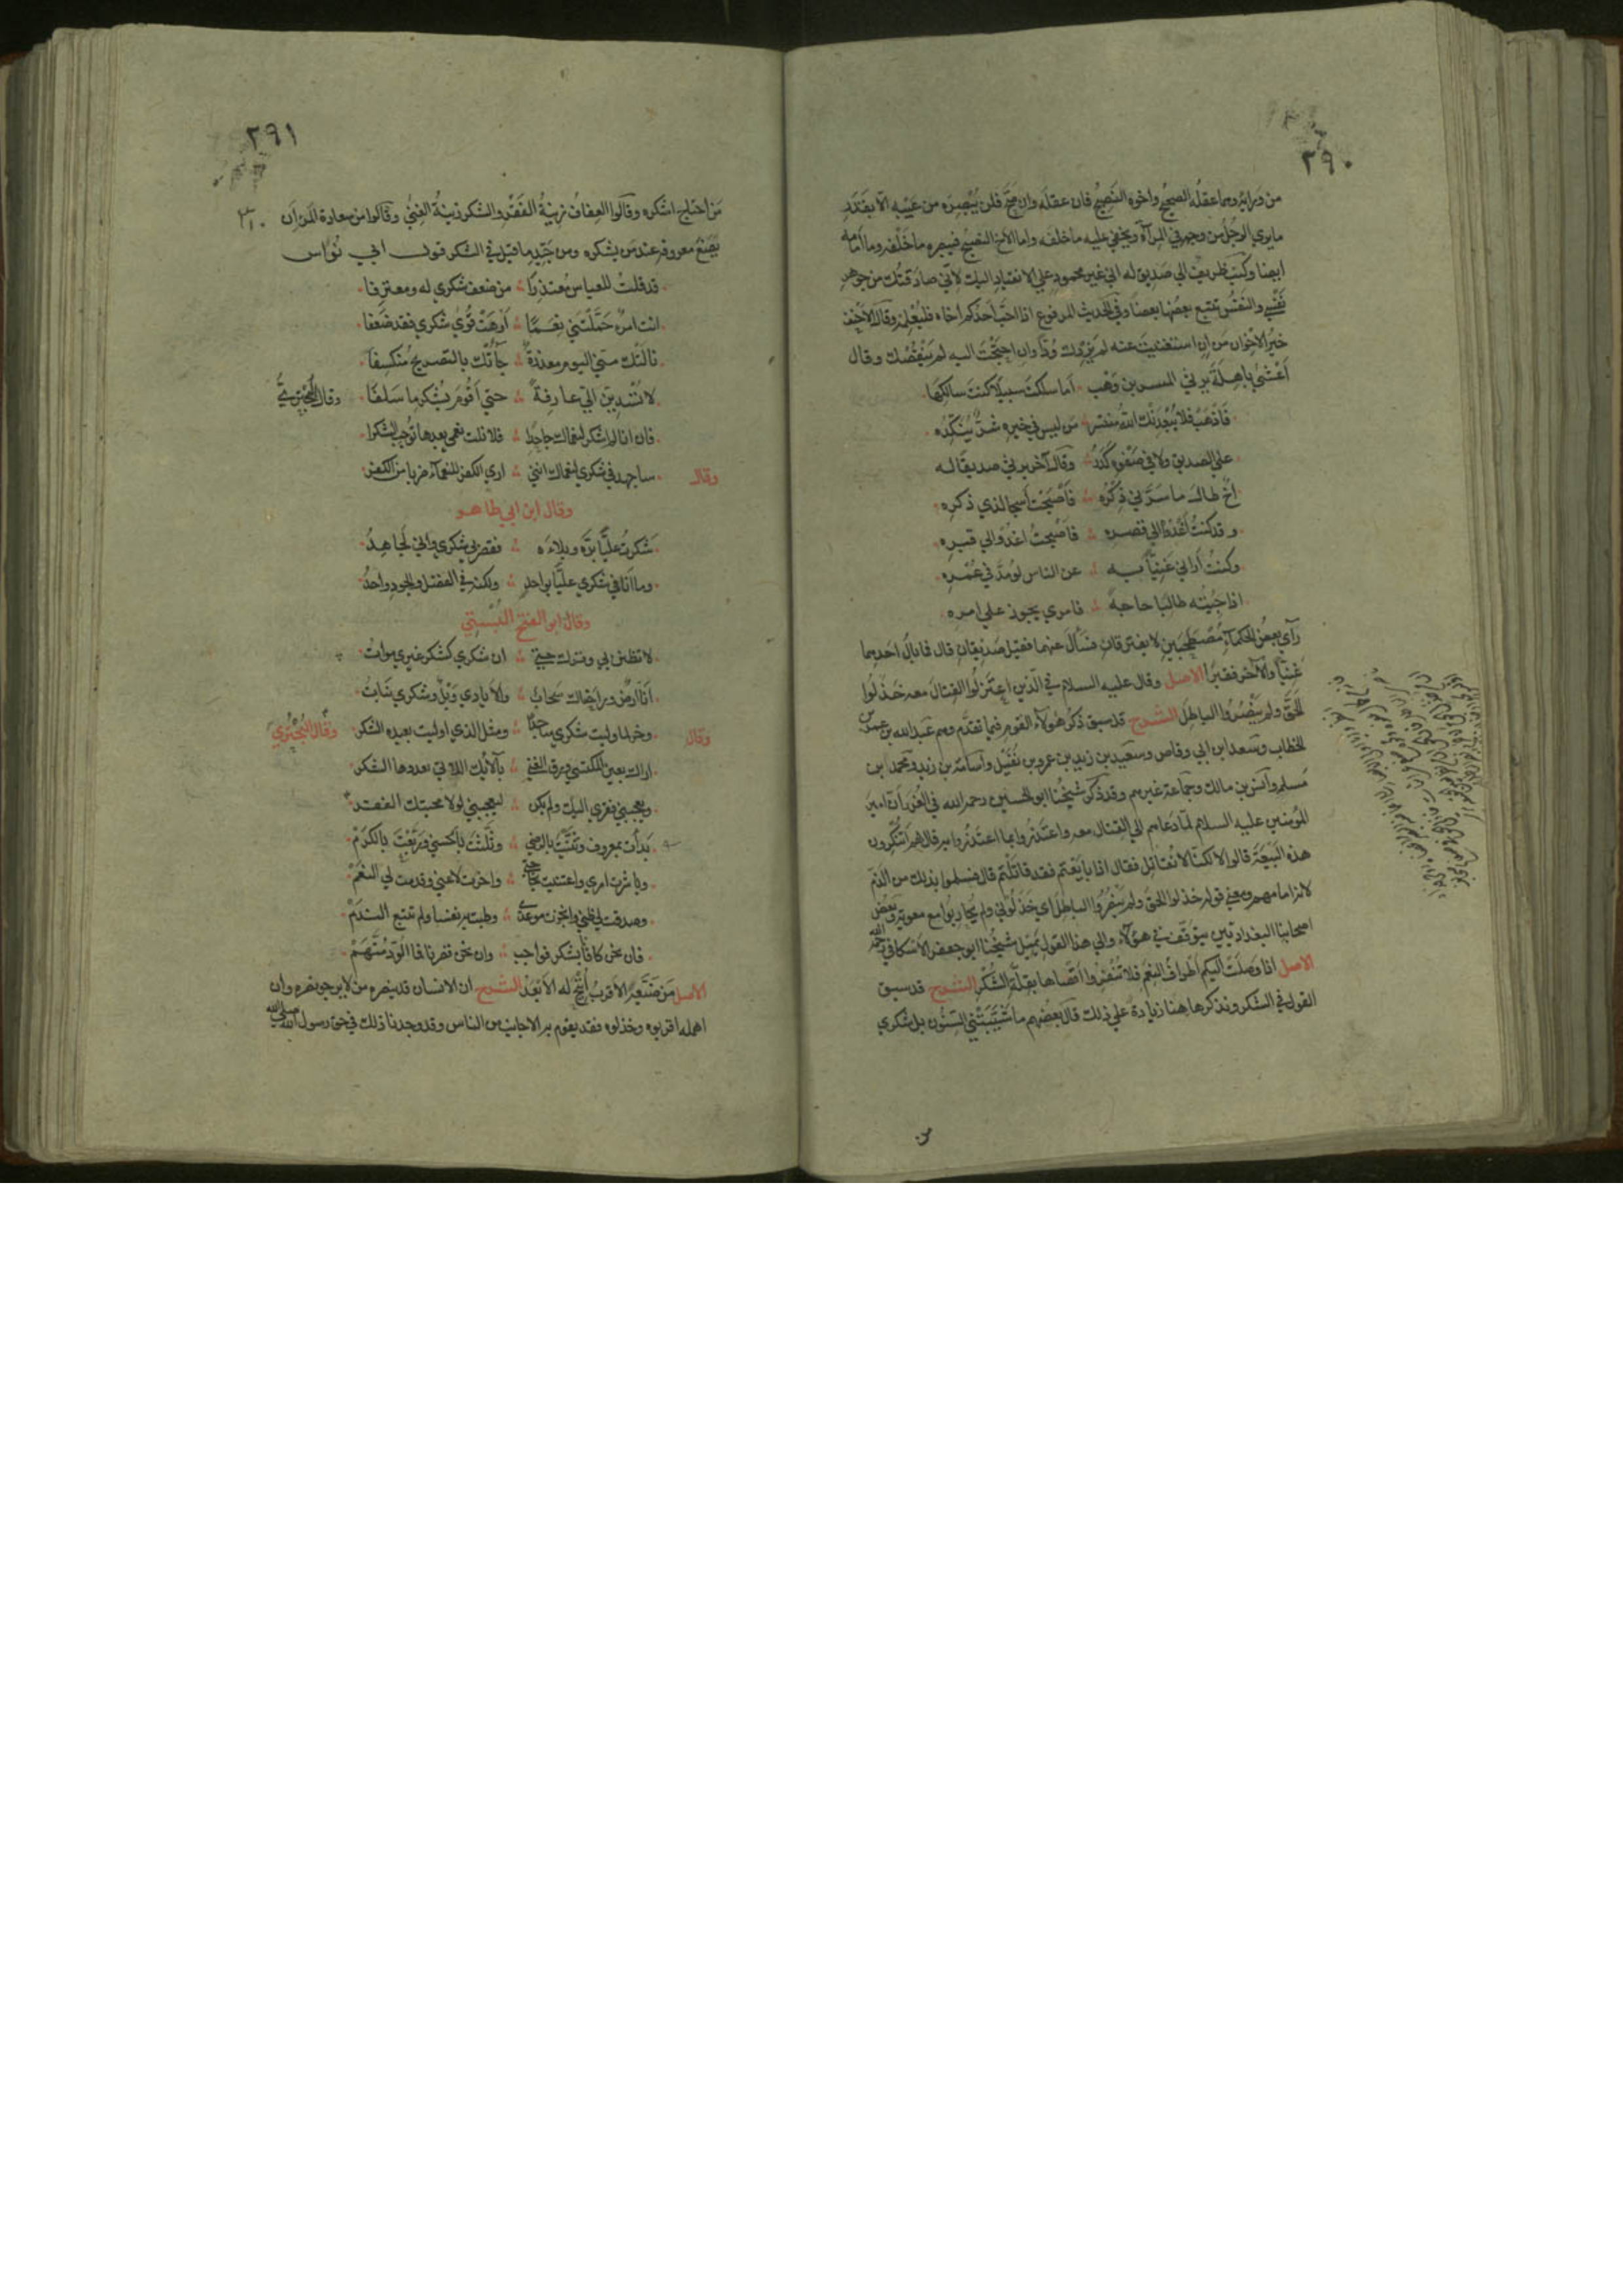 ٢٩٠
من وراية وهما عقله الصحيح واخوه النصيح فان عقله وان صح فلن يبصره من عيبه الا بقدر
مايرى الرجل من وجهه في المرآة ويخفى عليه ما خلفه واما الاخ النصيح فيبصره ما خلفه وما أمامه
ايضا وكتب ظريف الى صديق له اني غير محمود على الانقياد اليك لأني صادقتك من جوهر
نفسي والنفس يتبع بعضها بعضا وفي الحديث المرفوع اذا احب أحدكم أخاه فليعلمه وقال الاحنف
خير الاخوان من ان استغنيت عنه لم يزدك ودا وان احتجت اليه لم ينقصك وقال
أعشى باهلة يرثي المنتشر بن وهب أما سلكت سبيلا كنت سالكها
فاذهب فلا يبعدنك الله منتشر من ليس في خيره شر ينكده
على الصديق ولا في صفوه كدر وقال آخر يرثي صديقا له
اخ طالما سرني ذكره فأصبحت أشجى لذي ذكره
وقد كنت أغدو الى قصره فاصبحت اغدو الى قبره
وكنت أراني غنيا به عن الناس لو مد في عمره
اذا جئته طالبا حاجة فامري يجوز على امره
رأى بعض الحكماء مصطحبين لا يفترقان فسأل عنهما فقيل صديقان قال فما بال احدهما
غنيا والآخر فقيرا الاصل وقال عليه السلام في الذين اعتزلوا القتال معه خذلوا
الحق ولم ينصروا الباطل الشرح قد سبق ذكر هؤلاء القوم فيما تقدم وهم عبد الله بن عمر بن
الخطاب وسعد ابن ابي وقاص وسعيد بن زيد بن عمرو بن نفيل وأسامة بن زيد ومحمد ابن
مسلمه وأنس بن مالك وجماعة غيرهم وقد ذكر شيخنا ابو الحسين رحمه الله في الغرر أن امير
المؤمنين عليه السلام لما دعاهم الى القتال معه واعتذروا بما اعتذروا به قال لهم أتنكرون
هذه البيعة قالوا لا لكنا لا نقاتل فقال اذا بايعتم فقد قاتلتم قال فسلموا بذلك من الذم
لان امامهم رضي عنهم ومعنى قوله خذلوا الحق ولم ينصروا الباطل اي خذلوني ولم يحاربوا مع معوية وبعض
اصحابنا البغداديين يتوقف في هؤلاء والى هذا القول يميل شيخنا ابو جعفر الاسكافي رحمه الله
الاصل اذا وصلت اليكم أطراف النعم فلا تنفروا أقصاها بقلة الشكر الشرح قد سبق
القول في الشكر ونذكر هاهنا زيادة على ذلك قال بعضهم ما شيبتني السنون بل شكري
٢٩١
من احتاج اشكره وقالوا العفاف زينة الفقر والشكر زينة الغنى وقالوا من سعادة المرء ان
يضع معروفه عند من يشكره ومن جيد ما قيل في الشكر قول ابي نواس
قد قلت للعباس معتذرا من ضعف شكري له ومعترفا
انت امرؤ حملتني نعما أوهت قوى شكري فقد ضعفا
نالتك مني اليوم معذرة جاءتك بالتصريح منكسفا
لا تسدين الي عارفة حتى أقوم بشكر ما سلفا وقال البحتري
فان انا لم اشكر لنعماك جاهدا فلا نلت نعمى بعدها توجب الشكرا
وقال ساجهد في شكري لنعماك انني ارى الكفر للنعماء ضربا من الكفر
وقال ابن ابي طاهر
شكرت عليا بره وبلاءه فقصر بي شكري واني لجاهد
وما انا في شكري عليا بواحد ولكنه في الفضل والجود واحد
وقال ابو الفتح البستي
لا تظنن بي وبرك حي ان شكري كشكر غيري موات
أنا ارض وراحتاك سحاب والايادي وبل وشكري نبات
وقال وخر لما اوليت شكري ساجدا ومثل الذي اوليت يعبده الشكر وقال البحتري
اراك بعين المكتسي ورق الغنى بآلائك اللاتي يعددها الشكر
ويعجبني فقري اليك ولم يكن ليعجبني لولا محبتك الفقر
بدأت بمعروف وثنيت بالرضى وثلثت بالحسنى وربعت بالكرم
وباشرت امري واعتنيت بحاجتي واخرت لا عني وقدمت لي النعم
وصدقت لي ظني وانجزت موعدي وطبت به نفسا ولم تتبع الندم
فان نحن كافأنا بشكر فواجب وان نحن قصرنا فما الود متهم
الاصل من ضيعه الاقرب أتيح له الأبعد الشرح ان الانسان قد ينصره من لا يرجو نصره وان
اهمله اقربوه وخذلوه فقد يقوم به الاجانب من الناس وقد وجدنا ذلك في حق رسول الله صلى الله